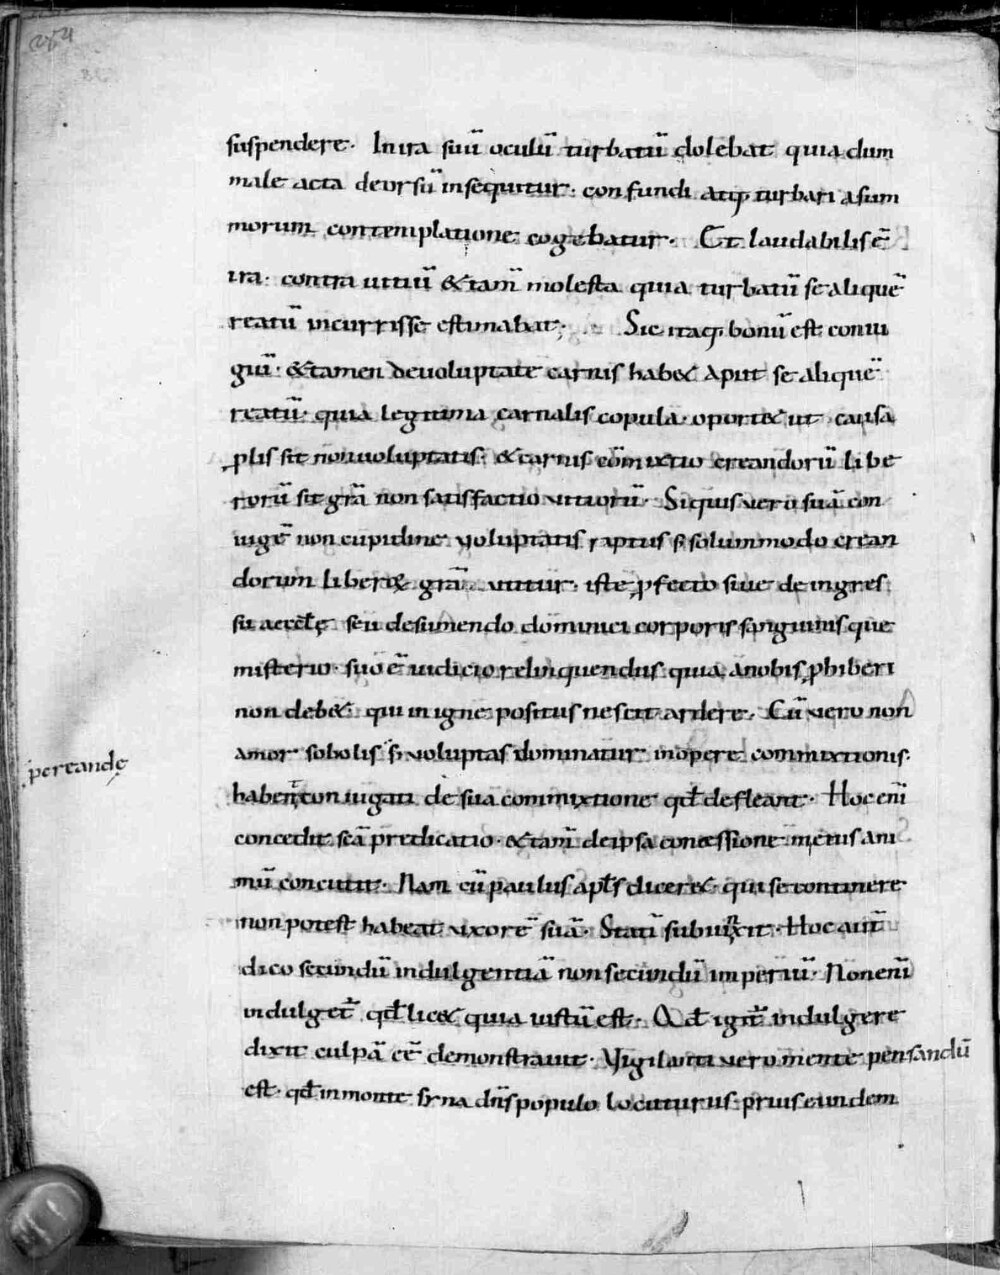 suspendere· In ira suū oculū turbatū dolebat quia dum
male acta deorsū insequitur· confundi atq; turbari asum
morum contemplatione cogebatur· Et laudabilis ē
ira· contra uitiū &tam̄ molesta quia turbatū se aliquē
reatū incurrisse estimabat· Sic itaq; bonū est coniu
giū· &tamen deuoluptate carnis hab& aput se aliquē
reatū· quia legitima carnalis copula· oport& ut causa
plis sit non uoluptatis· & carnis cōmixtio creandorū libe
rorū sit grā non satisfactio uitiorū· Siquis uero suā con
iugē non cupidine voluptatis raptus s; solummodo crean
dorum liberoꝝ grā utitur· iste ꝓfecto siue de ingres
su aeccłę seu desumendo dominici corporis sanguinisque
misterio· suo ē iudicio relinquendus quia anobis ꝓhiberi
non deb&· qui in igne positus nescit ardere· Cū vero non
amor sobolis s; voluptas dominatur inopere commixtionis·
haben̄t coniugati de sua commixtione qđ defleant· Hoc eni̅
concedit scā predicatio· &tam̄ deipsa concessione metus ani
mū concutit· Nam cū paulus apłs dicer& qui se continere
non potest habeat vxorē suā· Statī subiunxit· Hoc aut̄
dico secundū indulgentiā non secundū imperiū· Non eni̅
indulget̄ qđ lic& quia iustū est· Qđ igit̄ indulgere
dixit culpā eē demonstrauit· Vigilanti vero mente pensandū
est· qđ in monte syna dn̄s populo locuturus· prius eundem
percandę